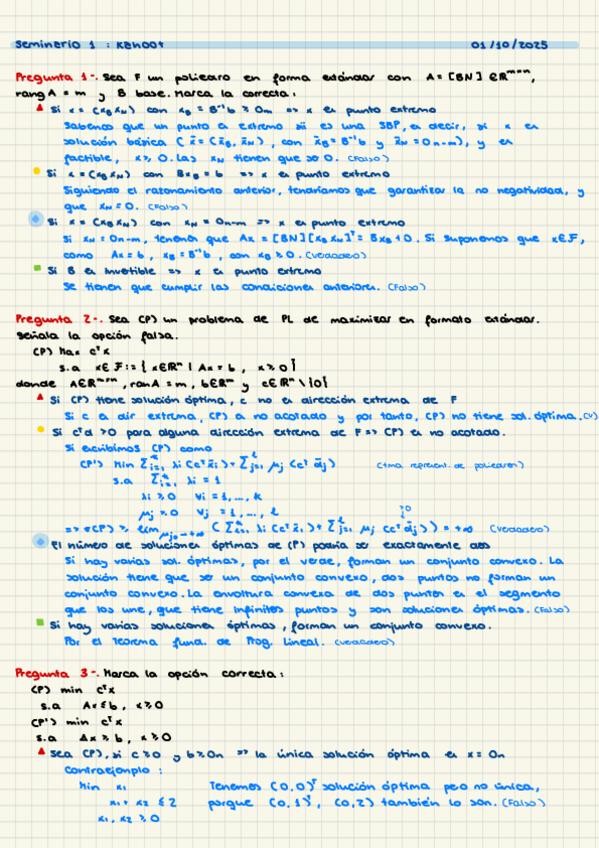 Seminario 1 : Kahoot 01/10/2025
Pregunta 1-. Sea F un poliedro en forma estándar con A = [BN] ∈ ℝᵐˣⁿ,
rang A = m y B base. Marca la correcta:
Si x = (x_B x_N) con x_B = B⁻¹b ≥ 0m => x es punto extremo
Sabemos que un punto es extremo sii es una SBF, es decir, si x es
solución básica ( x̄ = (x̄_B, x̄_N), con x̄_B = B⁻¹b y x̄_N = 0n-m), y es
factible, x ≥ 0. Las x_N tienen que ser 0. (Falso)
Si x = (x_B x_N) con Bx_B = b => x es punto extremo
Siguiendo el razonamiento anterior, tendríamos que garantizar la no negatividad, y
que x_N = 0. (Falso)
Si x = (x_B x_N) con x_N = 0n-m => x es punto extremo
Si x_N = 0n-m, tenemos que Ax = [BN][x_B x_N]ᵀ = Bx_B + 0. Si suponemos que x∈F,
como Ax = b, x_B = B⁻¹b, con x_B ≥ 0. (Verdadero)
Si B es invertible => x es punto extremo
Se tienen que cumplir las condiciones anteriores. (Falso)
Pregunta 2-. Sea (P) un problema de PL de maximizar en formato estándar.
Señala la opción falsa.
(P) Max cᵀx
s.a x∈F := { x∈ℝⁿ | Ax = b , x ≥ 0}
donde A∈ℝᵐˣⁿ, ran A = m, b∈ℝᵐ y c∈ℝⁿ \ {0}
Si (P) tiene solución óptima, c no es dirección extrema de F
Si c es dir extrema, (P) es no acotado y por tanto, (P) no tiene sol. óptima. (V)
Si cᵀd > 0 para alguna dirección extrema de F => (P) es no acotado.
Si escribimos (P) como
(P') Min Σ λi (cᵀx̄i) + Σ μj (cᵀd̄j) (tma represent. de poliedros)
s.a Σ λi = 1
λi ≥ 0 ∀i = 1, ..., k
μj ≥ 0 ∀j = 1, ..., l
=> v(P) ≥ lim μj0→+∞ ( Σ λi (cᵀx̄i) + Σ μj (cᵀd̄j) ) = +∞ (Verdadero)
El número de soluciones óptimas de (P) podría ser exactamente dos
Si hay varias sol. óptimas, por el verde, forman un conjunto convexo. La
solución tiene que ser un conjunto convexo, dos puntos no forman un
conjunto convexo. La envoltura convexa de dos puntos es el segmento
que los une, que tiene infinitos puntos y son soluciones óptimas. (Falso)
Si hay varias soluciones óptimas , forman un conjunto convexo.
Por el Teorema fund. de Prog. Lineal. (Verdadero)
Pregunta 3-. Marca la opción correcta:
(P) min cᵀx
s.a Ax ≤ b , x ≥ 0
(P') min cᵀx
s.a Ax ≥ b , x ≥ 0
Sea (P), si c ≥ 0 y b ≥ 0m => la única solución óptima es x = 0n
Contraejemplo :
Min x₁ Tenemos (0,0)ᵀ solución óptima pero no única,
x₁ + x₂ ≤ 2 porque (0,1)ᵀ, (0,2) también lo son. (Falso)
x₁, x₂ ≥ 0